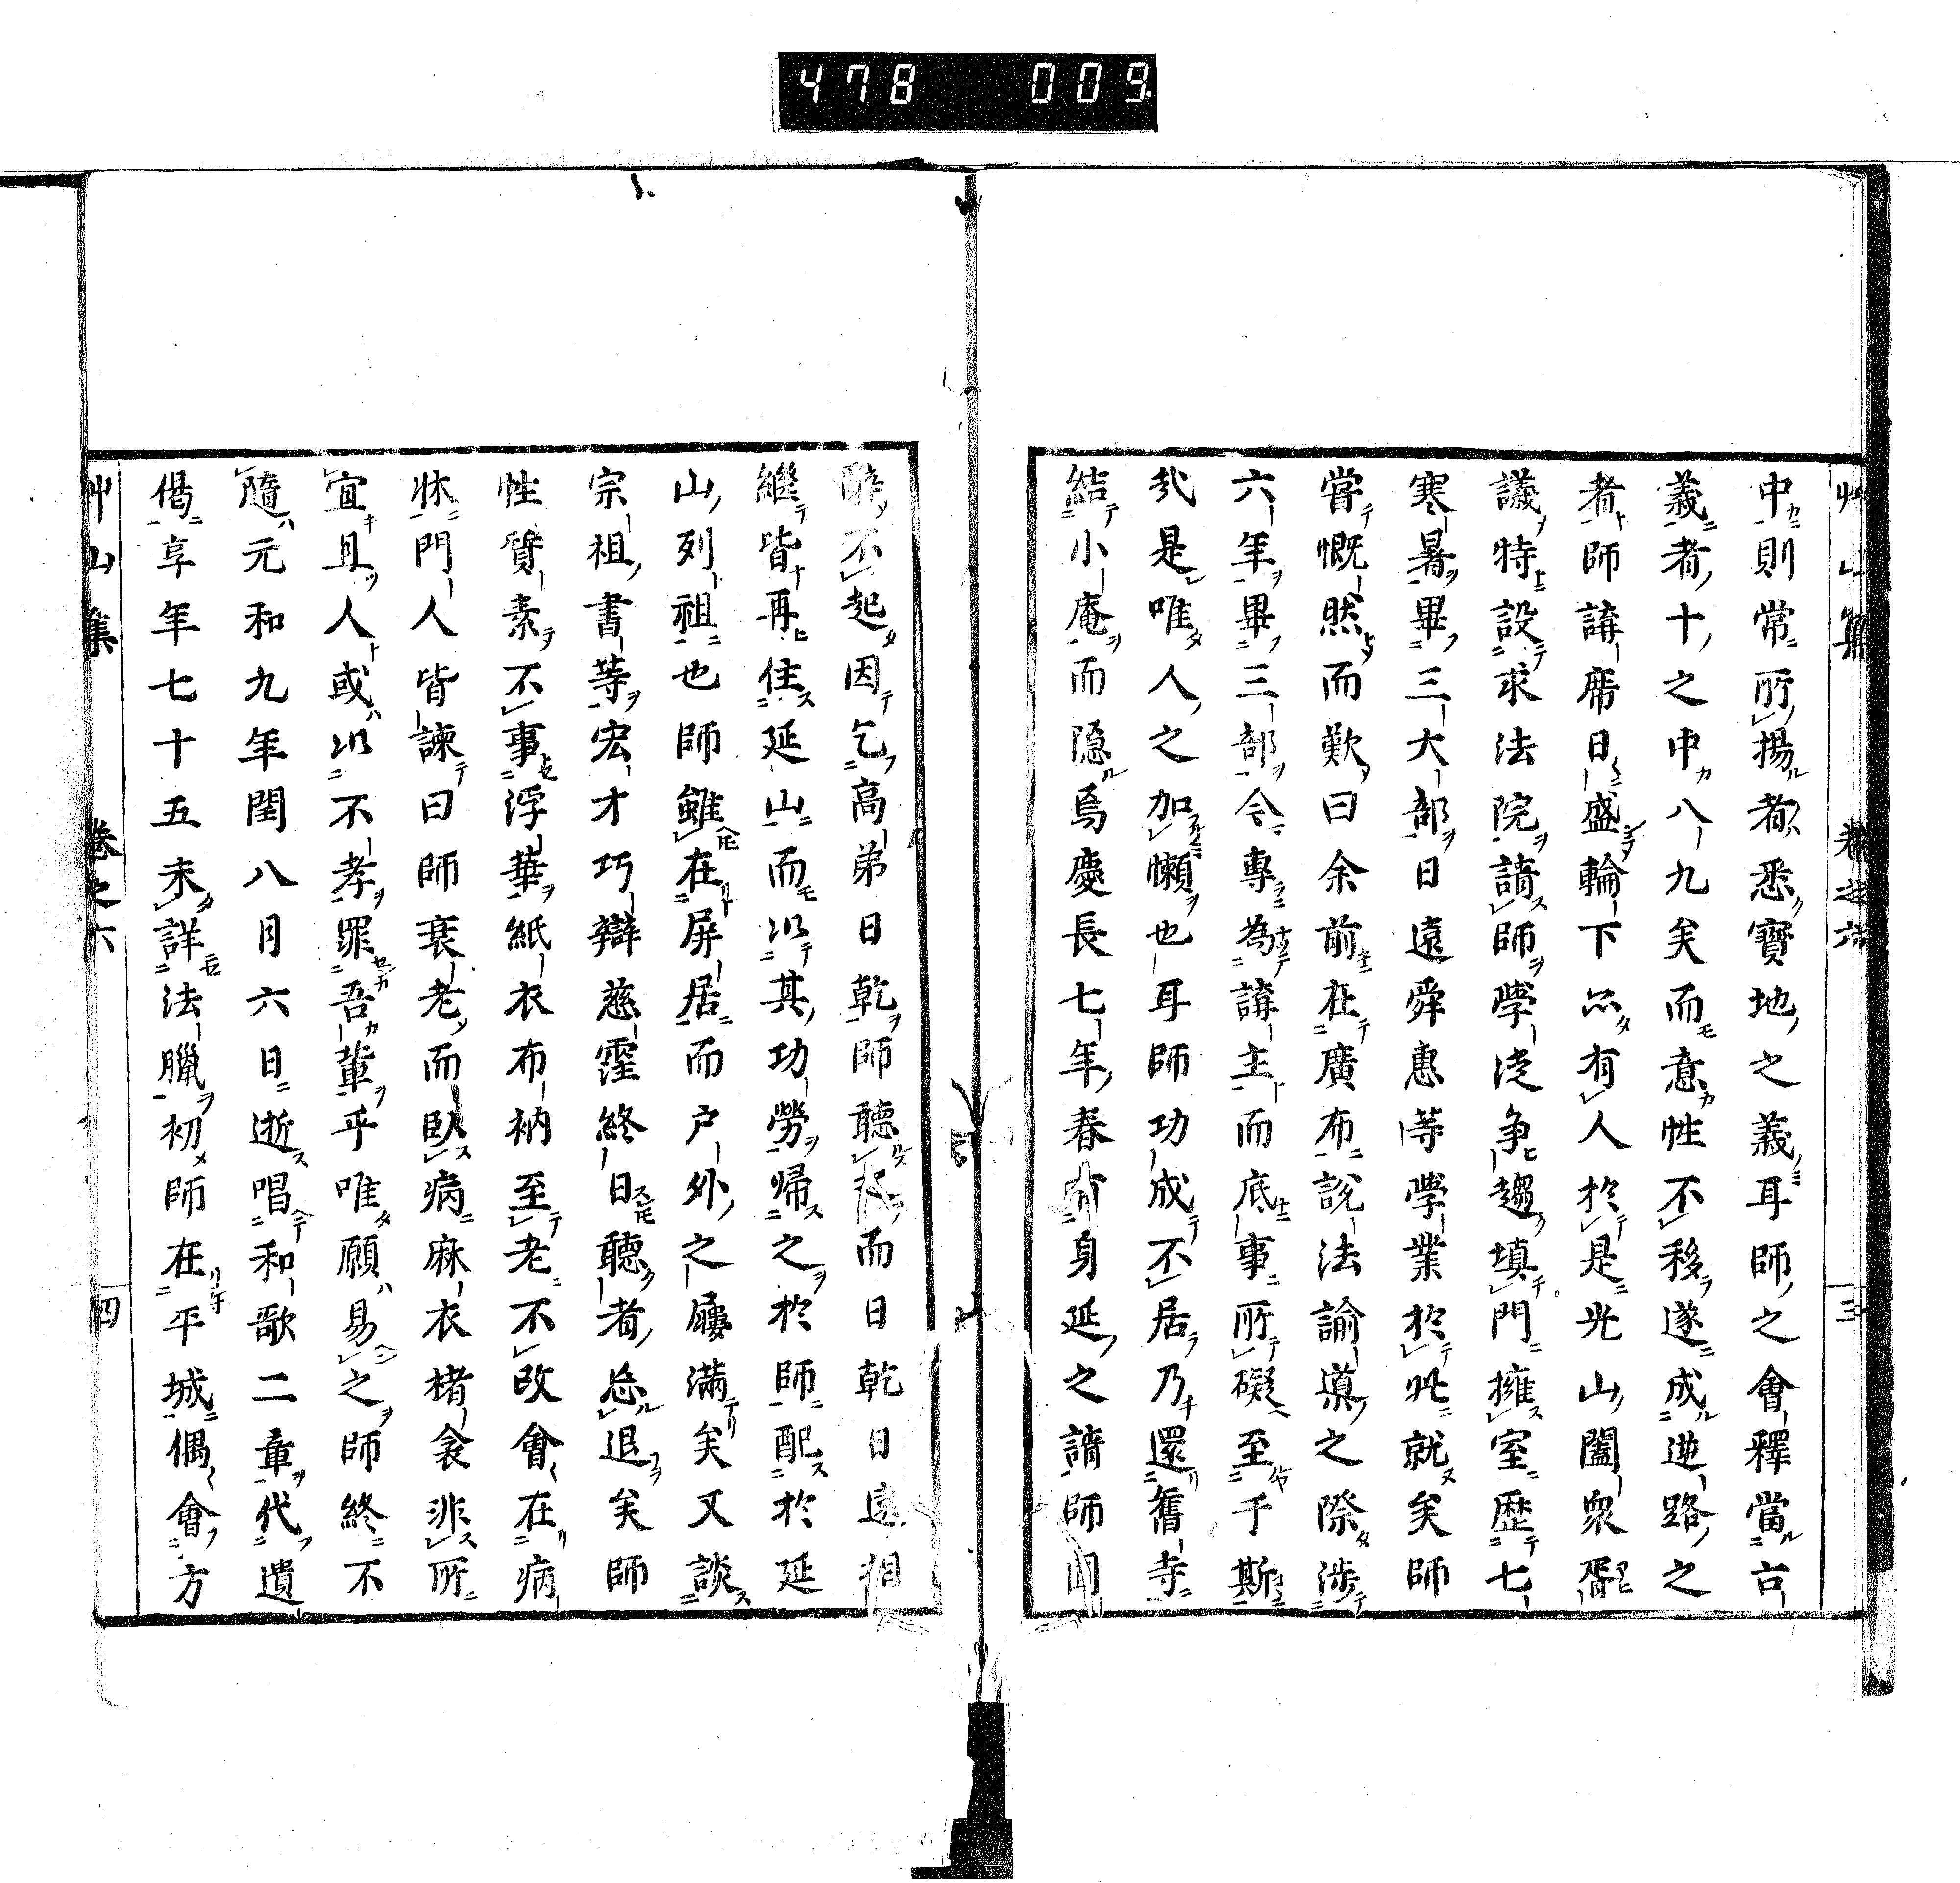 478 009
艸山集 卷之六 三
中則常所揚者悉寶地之義耳師之會釋當台
義者十之中八九矣而意性不移遂成迷路之
者師講席日盛輪下亦有人於是光山闔衆胥
議特設求法院請師學徒爭趨填門擁室歷七
寒暑畢三大部日遠舜惠等學業於此就矣師
嘗慨然而歎曰余前在廣布說法諭導之際涉
六年畢三部今專為講主而底事所礙至于斯
哉是唯人之加懶也耳師功成不居乃還舊寺
結小庵而隱焉慶長七年春有身延之請師固
辭不起因乞高弟日乾師聽而日乾日遠相
繼皆再住延山而以其功勞歸之於師配於延
山列祖也師雖在屏居而户外之屨滿矣又談
宗祖書等宏才巧辯慈霔終日聽者忘退矣師
性質素不事浮華紙衣布衲至老不改會在病
牀門人皆諫曰師衰老而臥病麻衣楮衾非所
宜且人或以不孝罪吾輩乎唯願易之師終不
隨元和九年閏八月六日逝唱和歌二章代遺
偈享年七十五未詳法臘初師在平城偶會方
艸山集 卷之六 四